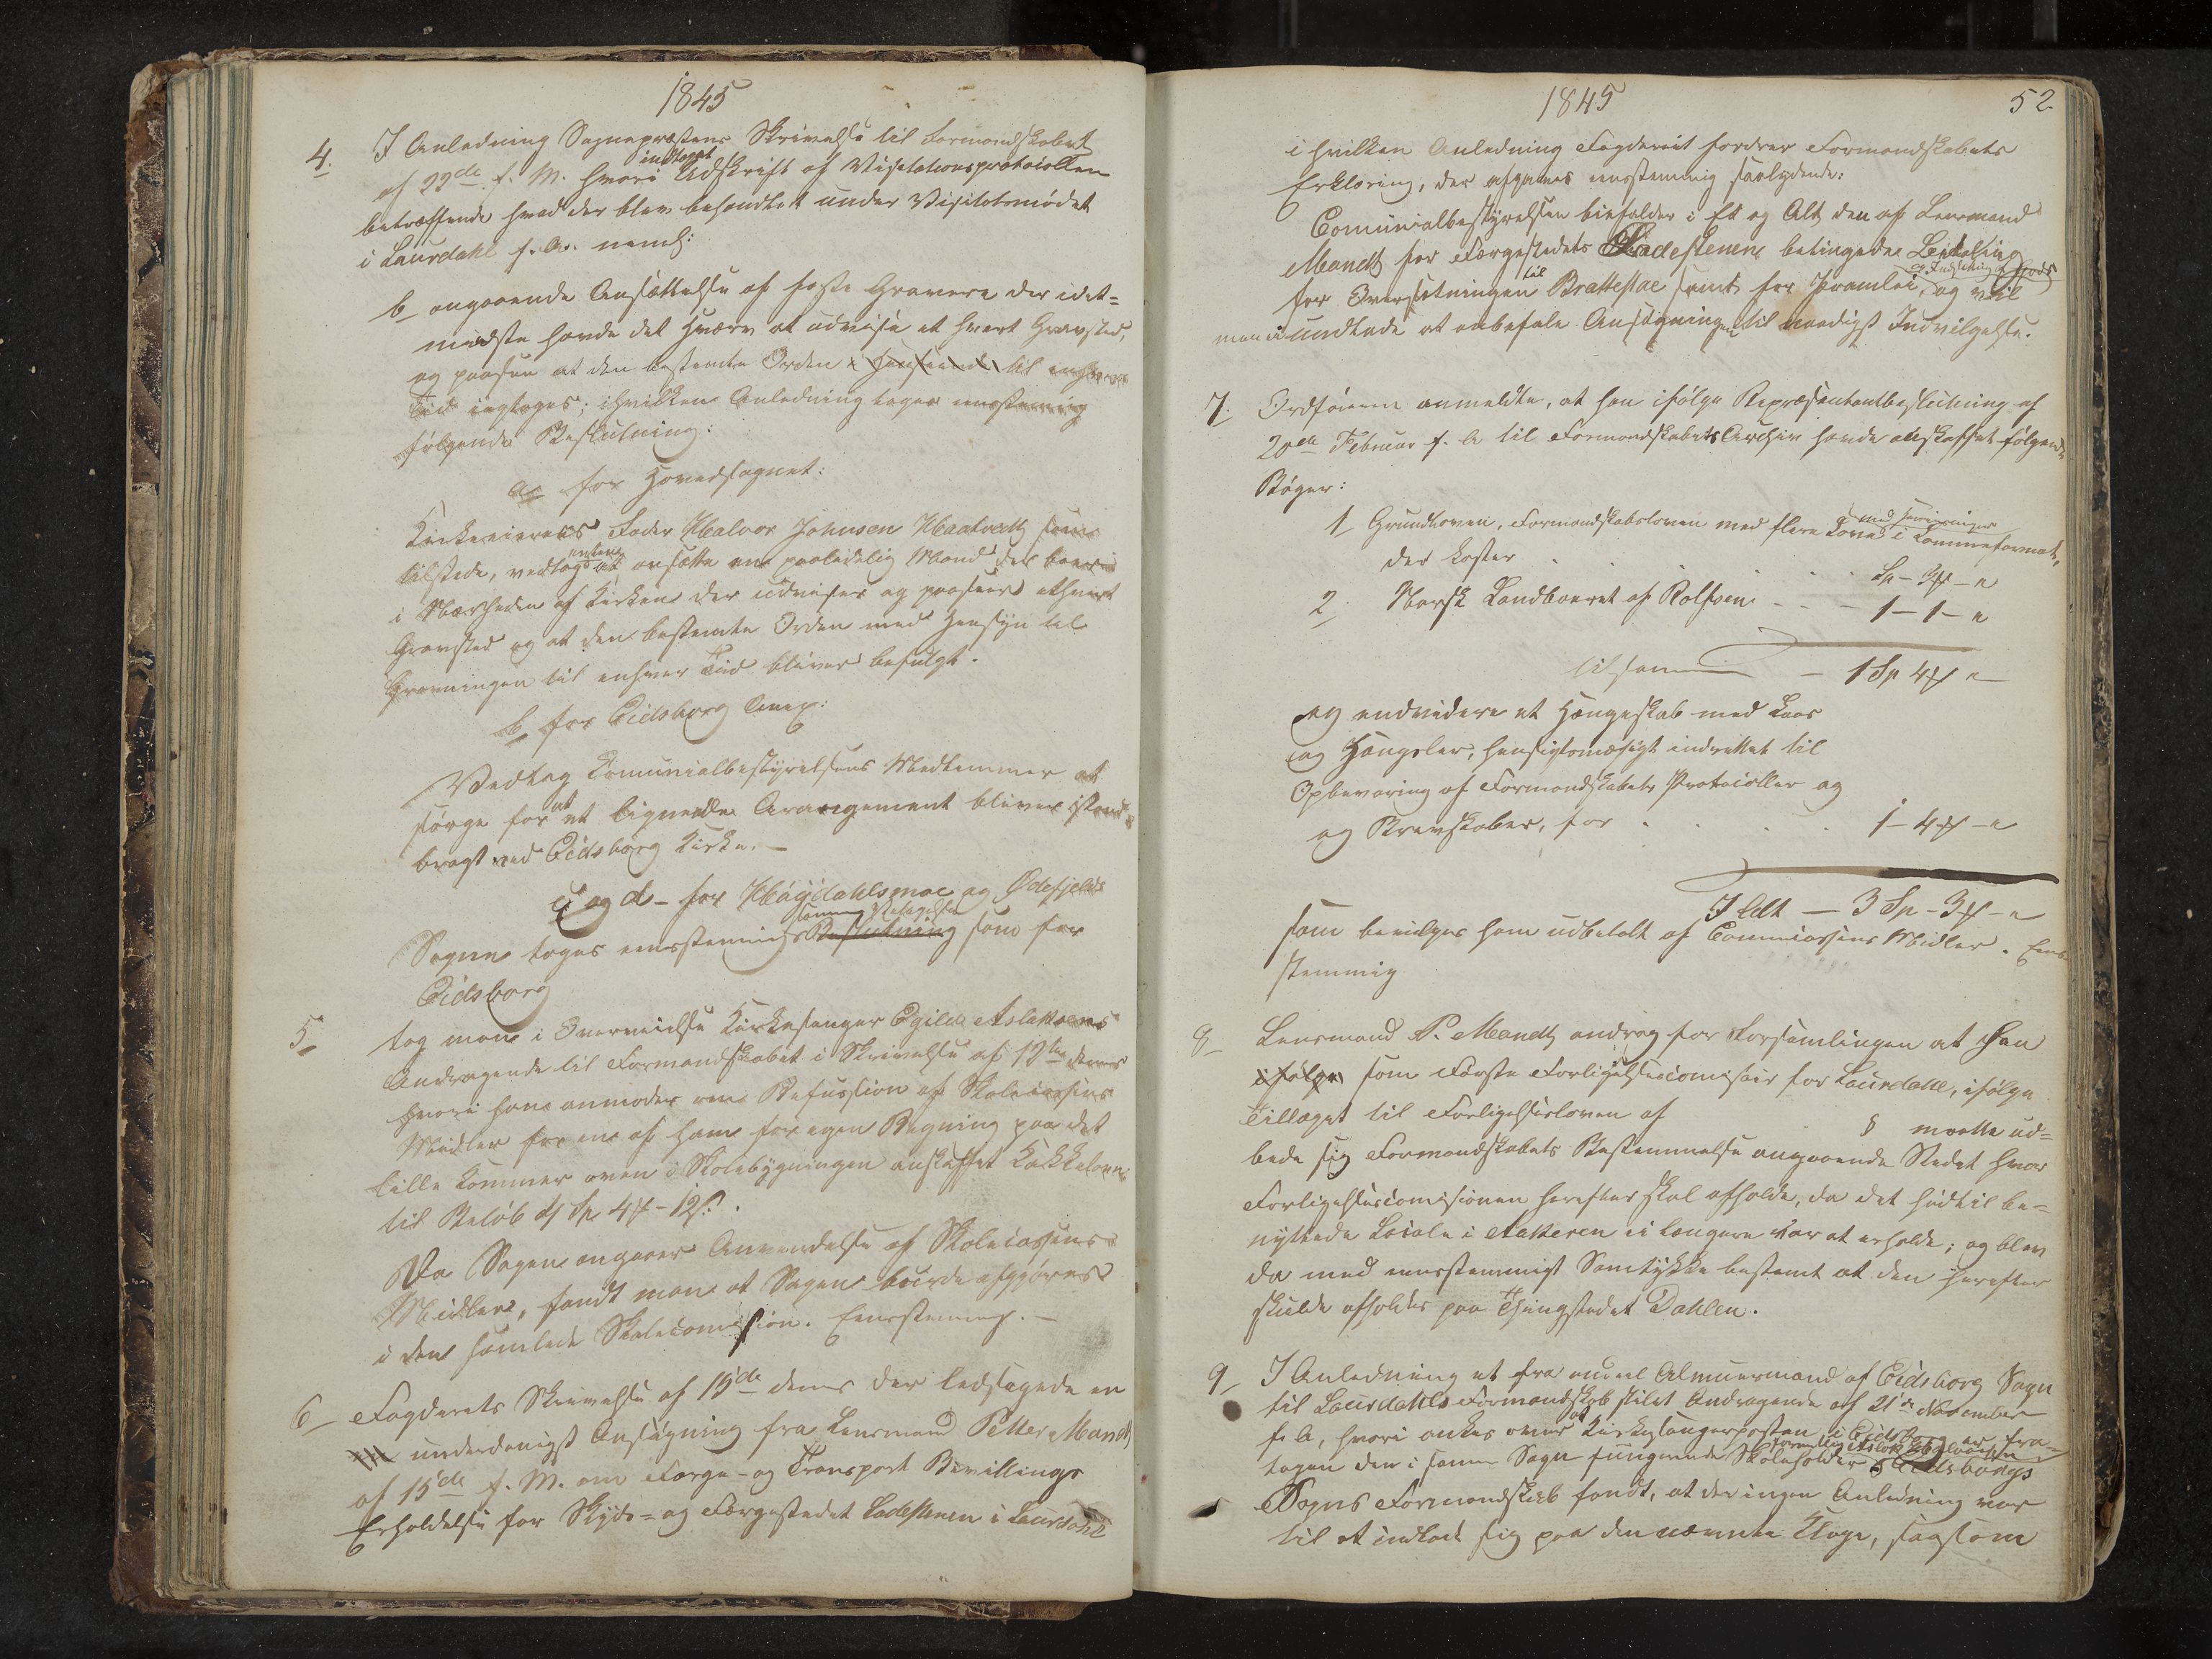 1845
4. I Anledning Sognepræstens Skrivelse til Formandskabet
af 22de f. M. hvori indtaget Udskrift af Visitationsprotocollen
betræffende hvad der blev behandlet under Visitatsmødet
i Laurdahl f. A. neml:
b angaaende Ansættelse af faste Gravere der idet=
mindste havde det Hværv at udvise et hvert Gravsted,
og paasee at den bestemte Orden i Henseende til enhver
Tid iagtages; ihvilken Anledning toges eensstemmig
følgende Beslutning:
a for Hovedsognet:
Kirkeeierens Fader Halvor Johnsen Haatvedt som
tilstede, vedtog at ansætte en paalidelig Mand der boer
i Nærheden af Kirken der udviser og paaseer ethvert
Gravsted og at den bestemte Orden med Hensyn til
Gravningen til enhver Tid bliver befulgt.
b for Eidsborg Anex:
Vedtog Comunialbestyrelsens Medlemmer at
sørge for at et lignende Arangement bliver istand=
bragt ved Eidsborg Kirke. —
c og d - for Høydahlsmoe og Ødefjelds
Sogne toges eensstemmig samme Beslutning som for
Eidsborg
5 tog man i Overveielse Kirkesanger Egild Aslaksens
Andragende til Formandskabet i Skrivelse af 12te dennes
hvori han anmoder om Refussion af Skolecassens
Midler for en af ham for egen Regning paa det
lille Kammer oven i Skolebygningen anskaffet Kakkelovn
til Beløb af Sp. 4 - 12 s.
Da Sagen angaaer Anvendelse af Skolecassens
Midler, fandt man at Sagen burde afgjøres
i den samlede Skolecomission. Eensstemmig. —
6 Fogderiets Skrivelse af 15de dennes der ledsagede en
underdanigst Ansøgning fra Lensmand Petter Mandt
af 15de f. M. om Færge- og Transport Bevillings
Erholdelse for Skyds- og Færgestedet Ladestenen i Laurdahl
1845 52
i hvilken Anledning Fogderiet fordrer Formandskabets
Erklæring, der afgaves eensstemmig saalydende:
Comunialbestyrelsen bifalder i Et og Alt den af Lensmand
Mandt for Færgestedets Ladestenens betingede
for Oversætningen til Brattestøe samt for og vil
man undlade at anbefale Ansøgningen til naadigst Indvilgelse.
7. Ordføreren anmeldte, at han ifølge Repræsentantbeslutning af
20de Februar f. A til Formandskabets Archiv havde anskaffet følgende
Bøger:
1 Grundloven, Formandskabsloven med flere Love i Lommeformat,
der koster . . . . Sp - 3 - "
2. Norsk Landboeret af Rolfsen - - - 1 - 1 - "
tilsammen - 1 Sp 4 "
og endvidere et Hængeskab med Laas
og Hængsler, hensigtsmæsigt indrettet til
Opbevaring af Formandskabets Protocoller og
og Brevskaber, for . . . . 1 - 4 - "
I Alt — 3 Sp - 3 - "
som bevilges ham udbetalt af Communecassens Midler. Eens=
stemmig
8 Lensmand P. Mandt androg for Forsamlingen at han
ifølge som Første Forligelsescomisair for Laurdahl, ifølge
Tillæget til Forligelsesloven af § maatte ud=
bede sig Formandskabets Bestemmelse angaaende Stedet hvor
Forligelsescomisionen herefter skal afholde, da det hidtil be=
nyttede Locale i Aakeren ei længere var at erholde; og blev
da med eensstemmigt Samtykke bestemt at den herefter
skulde afholdes paa Thingstedet Dahlen.
9 I Anledning et fra endeel Almuesmænd af Eidsborg Sogn
til Laurdahls Formandskab stilet Andragende af 21de November
f. A, hvori ankes over at Kirkesangerposten i Eidsborg er fra=
tagen den i samme Sogn fungerende Skoleholder Eidsborgs
Sogns Formandskab fandt, at der ingen Anledning var
til at indlade sig paa den nævnte Klage, saasom